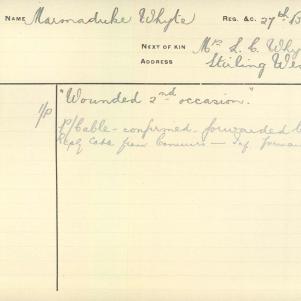 NAME Marmaduke Whyte REG. &C. 27th B
NEXT OF KIN Mrs L. C. Why
ADDRESS Stirling We
"Wounded 2nd occasion."
1/P P/Cable - confirmed. forwarded
Cable from